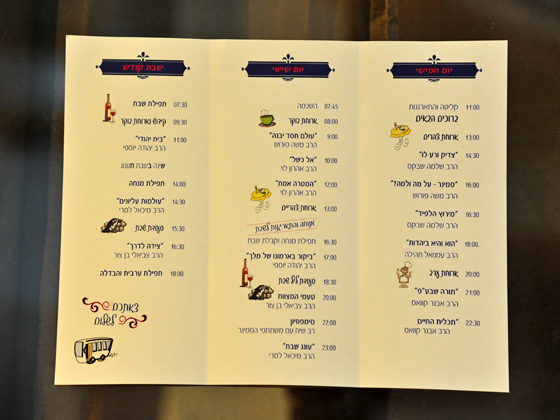 יום חמישי
11:00 קליטה והתארגנות
ברוכים הבאים
13:00 ארוחת צהריים
14:30 "צדיק ורע לו"
הרב שלמה שבקס
16:00 "סמינר - על מה ולמה?"
הרב משה פורוש
16:30 "מירוץ הלפיד"
הרב שלמה שבקס
18:00 "הוא והיא ביהדות"
הרב עמנואל תהילה
20:00 ארוחת ערב
21:00 "תורה שבע"פ"
הרב אבנר קוואס
22:30 "תכלית החיים"
הרב אבנר קוואס
יום שישי
07:45 השכמה
08:00 ארוחת בוקר
9:00 "עולם חסד יבנה"
הרב משה פורוש
10:00 "אל כשל"
הרב אהרון לוי
12:00 "המטרה אמת"
הרב אהרון לוי
13:00 ארוחת צהריים
מנוחה והתארגנות לשבת
16:30 תפילת מנחה וקבלת שבת
17:00 "ביקור בארמונו של מלך"
הרב יהודה יוספי
18:30 סעודת ליל שבת
20:00 טעמי המצוות
הרב צביאלי בן צור
22:00 סימפוזיון
רב שיח עם משתתפי הסמינר
23:00 "עונג שבת"
הרב מיכאל לסרי
שבת קודש
07:30 תפילת שבת
09:30 קידוש וארוחת בוקר
11:00 "בית יהודי"
הרב יהודה יוספי
שינה בשבת תענוג
14:00 תפילת מנחה
14:00 "עולמות עליונים"
הרב מיכאל לסרי
15:30 סעודת שבת
16:30 "צידה לדרך"
הרב צביאלי בן צור
18:00 תפילת ערבית והבדלה
צאתכם
לשלום